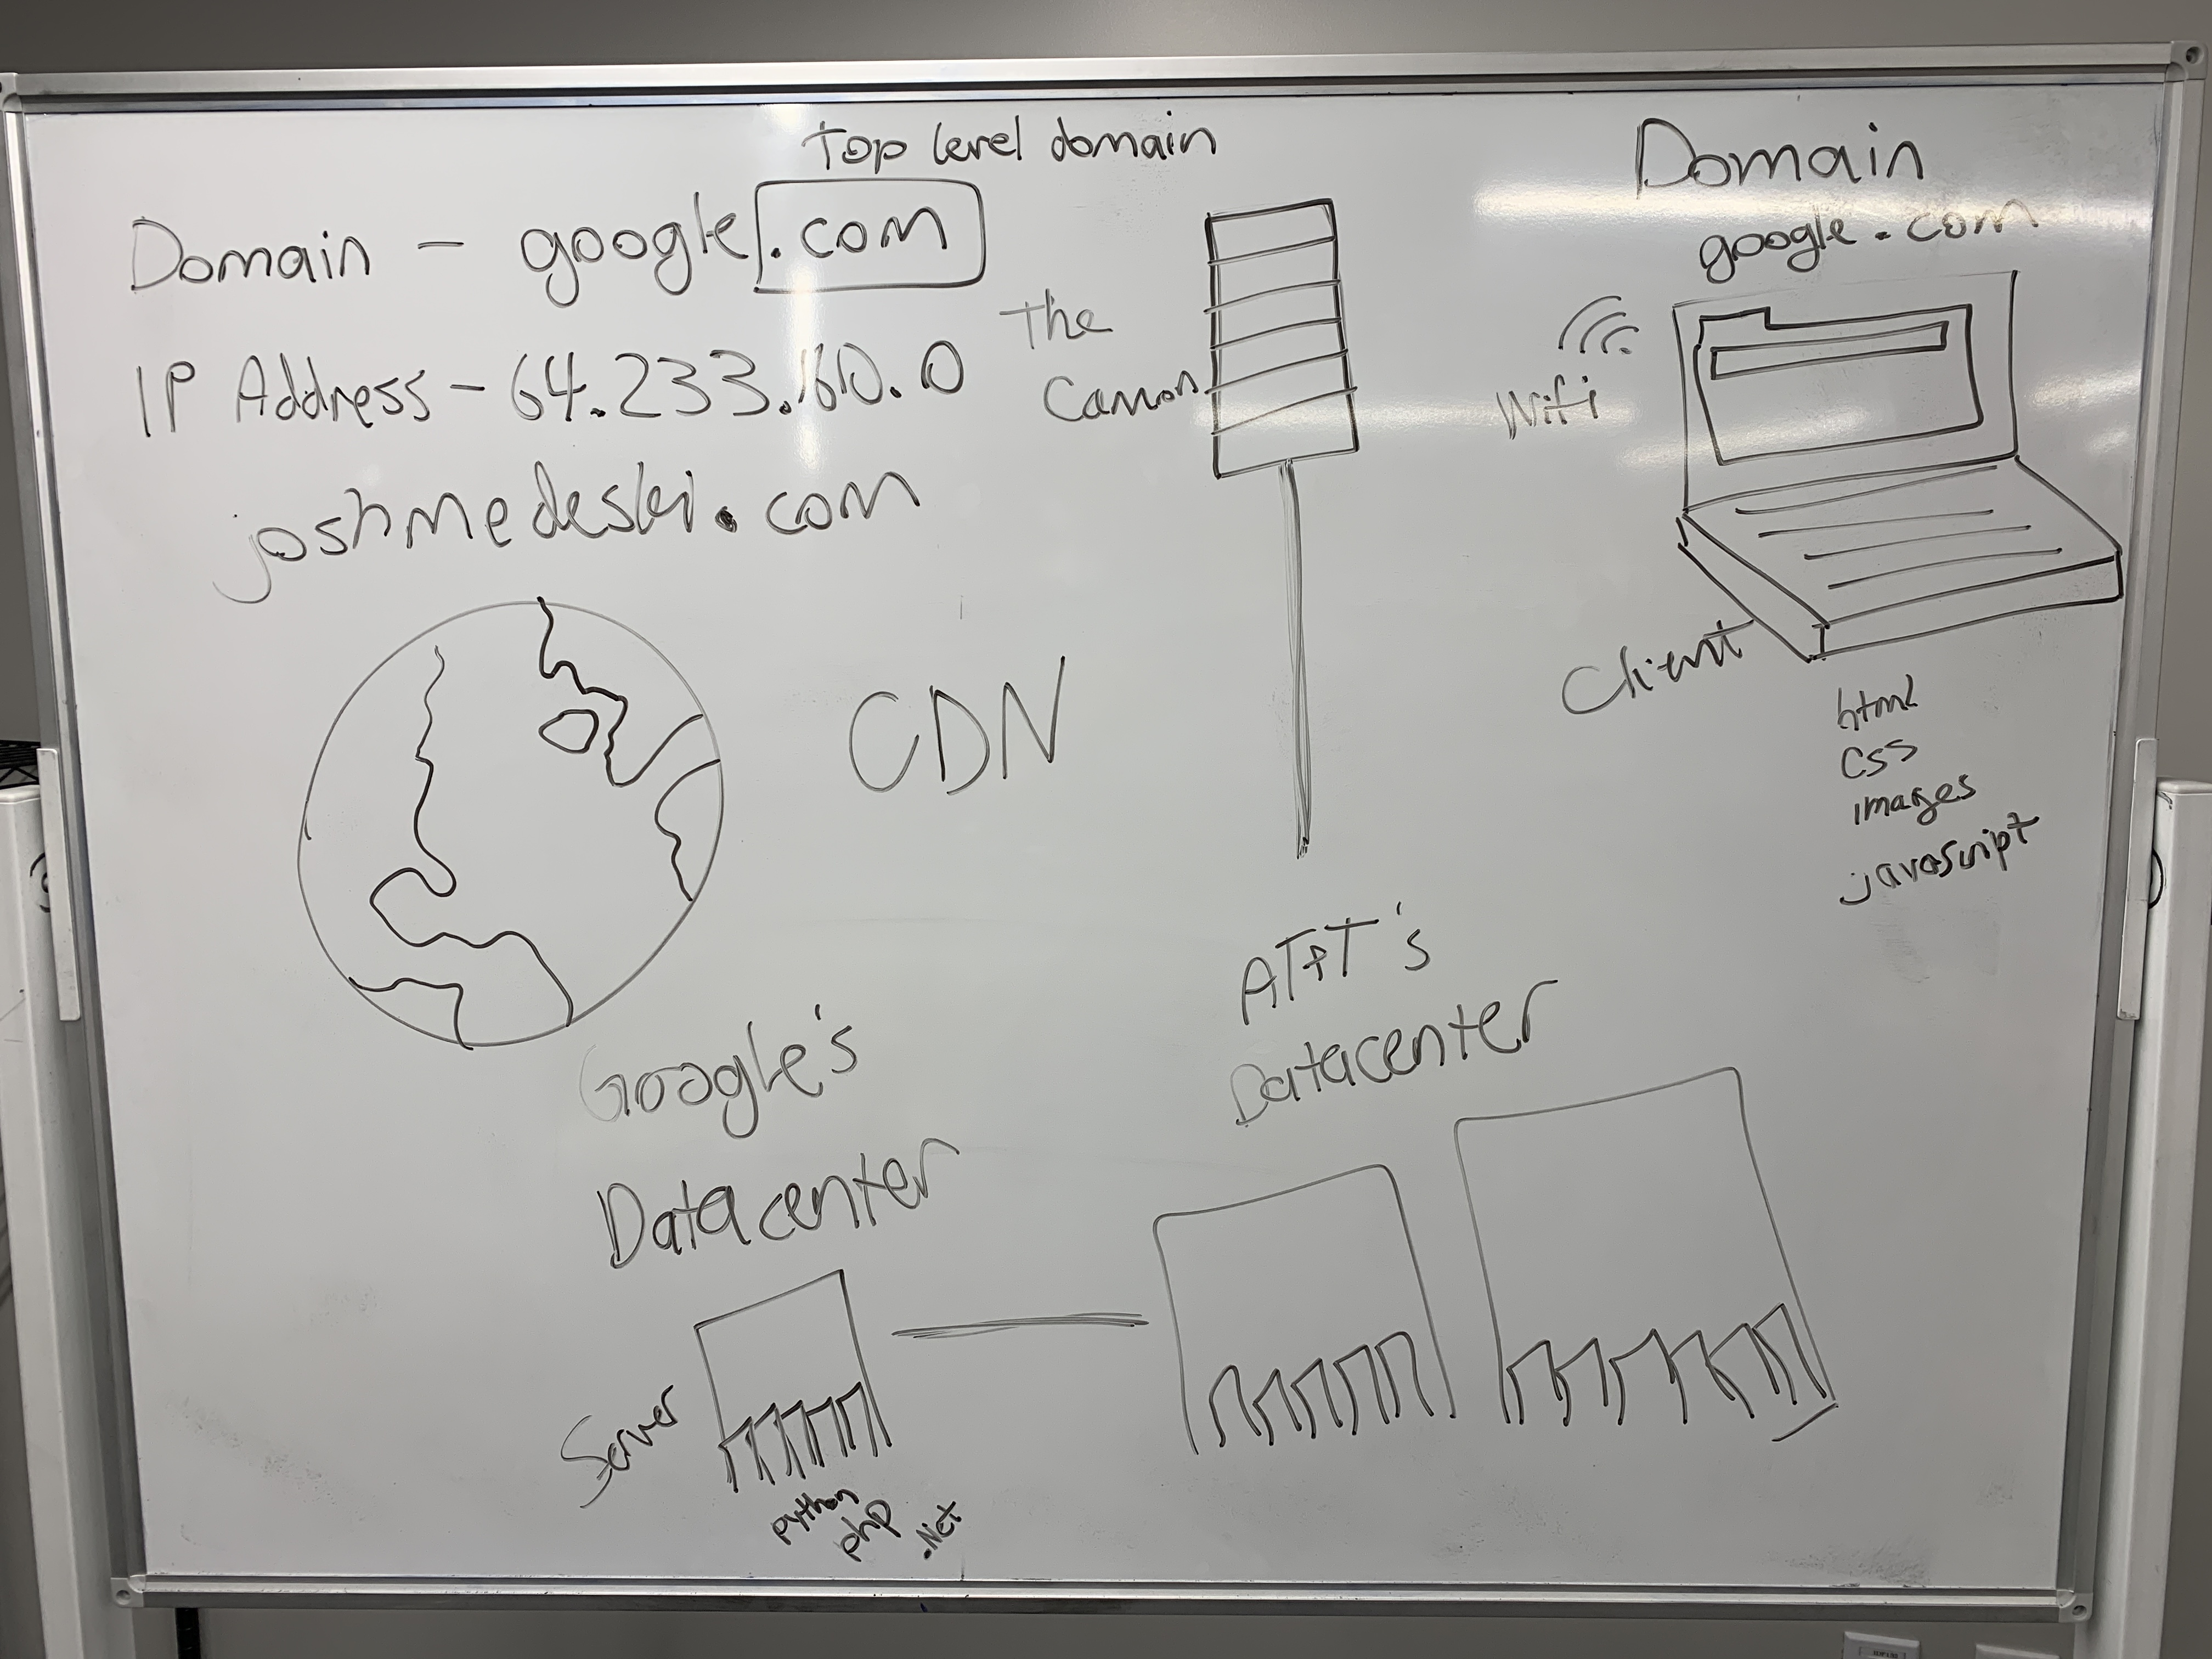 Top level domain
Domain - google.com
IP Address - 64.233.160.0
joshmedeski.com
The
Domain
google.com
Wifi
Client
html
css
images
javascript
CDN
AT+T's
Datacenter
Google's
Datacenter
Server
python
php
.Net